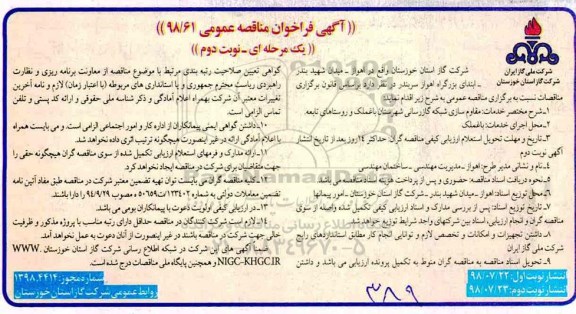 شرکت ملی گاز ایران
شرکت گاز استان خوزستان
(( آگهی فراخوان مناقصه عمومی ۹۸/۶۱ ))
(( یک مرحله ای ـ نوبت دوم ))
شرکت گاز استان خوزستان واقع در اهواز ـ میدان شهید بندر
ـ ابتدای بزرگراه اهواز سربندر در نظر دارد براساس قانون برگزاری
مناقصات نسبت به برگزاری مناقصه عمومی به شرح زیر اقدام نماید:
۱ـ شرح مختصر خدمات: مقاوم سازی شبکه گازرسانی شهرستان باغملک و روستاهای تابعه.
۲ـ محل اجرای خدمات: باغملک
۳ـ تاریخ و مهلت تحویل استعلام ارزیابی کیفی مناقصه گران حداکثر ۱۴ روز بعد از تاریخ انتشار
آگهی نوبت دوم
۴ـ نام و نشانی مدیر طرح: اهواز ـ مدیریت مهندسی ـ ساختمان مهندسی
۵ـ نحوه دریافت اسناد مناقصه: حضوری و پس از پرداخت وجه
۶ـ محل توزیع اسناد: اهواز ـ میدان شهید بندر ـ شرکت گاز استان خوزستان ـ امور پیمانها
۷ـ تاریخ توزیع اسناد: پس از بررسی مدارک و اسناد ارزیابی کیفی تکمیل شده واصله از سوی
مناقصه گران و انجام ارزیابی، اسناد بین شرکتهای واجد شرایط توزیع خواهد شد.
۸ـ داشتن تجهیزات و امکانات و تخصص لازم و توانایی انجام کار مطابق استانداردهای رایج
شرکت ملی گاز ایران
۹ـ تحویل اسناد مناقصه به مناقصه گران منوط به تکمیل پرونده ارزیابی می باشد و داشتن
گواهی تعیین صلاحیت رتبه بندی مرتبط با موضوع مناقصه از معاونت برنامه ریزی و نظارت
راهبردی ریاست محترم جمهوری و یا استانداری های مربوطه (با اعتبار زمان) لازم و نامه آخرین
تغییرات معتبر آن شرکت بهمراه اعلام آمادگی و ذکر شناسه ملی حقوقی و ارائه کد پستی و تلفن
تماس الزامی است.
۱۰ـ داشتن گواهی ایمنی پیمانکاران از اداره کار و امور اجتماعی الزامی است. و می بایست همراه
با اعلام آمادگی ارائه در غیر اینصورت هیچگونه ترتیب اثری داده نخواهد شد.
۱۱ـ ارائه مدارک و فرمهای استعلام ارزیابی تکمیل شده از سوی مناقصه گران هیچگونه حقی را
جهت متقاضیان برای شرکت در مناقصه ایجاد نخواهد کرد.
۱۲ـ کلیه مناقصه گران می بایست توان تهیه تضمین معتبر شرکت در مناقصه طبق مفاد آئین نامه
تضمین معاملات دولتی به شماره ۱۲۳۴۰۲/ت۵۰۶۵۹ه مصوب ۹۴/۹/۲۹ را دارا باشند
۱۳ـ در ارزیابی کیفی اولویت دعوت با پیمانکاران بومی می باشد.
۱۴ـ لازم است شرکت کنندگان در مناقصه حداقل دارای رتبه مناسب با پروژه مذکور و ظرفیت
خالی جهت شرکت در مناقصه باشند در غیر اینصورت از آنان دعوت به عمل نخواهد آمد.
آگهی های این شرکت در شبکه اطلاع رسانی شرکت گاز استان خوزستان WWW.
NIGC-KHGC.IR و همچنین پایگاه ملی مناقصات درج شده است.
انتشار نوبت اول: ۹۸/۰۷/۲۲
انتشار نوبت دوم: ۹۸/۰۷/۲۳
شماره مجوز: ۱۳۹۸.۴۴۱۴
روابط عمومی شرکت گاز استان خوزستان
۳۸۹